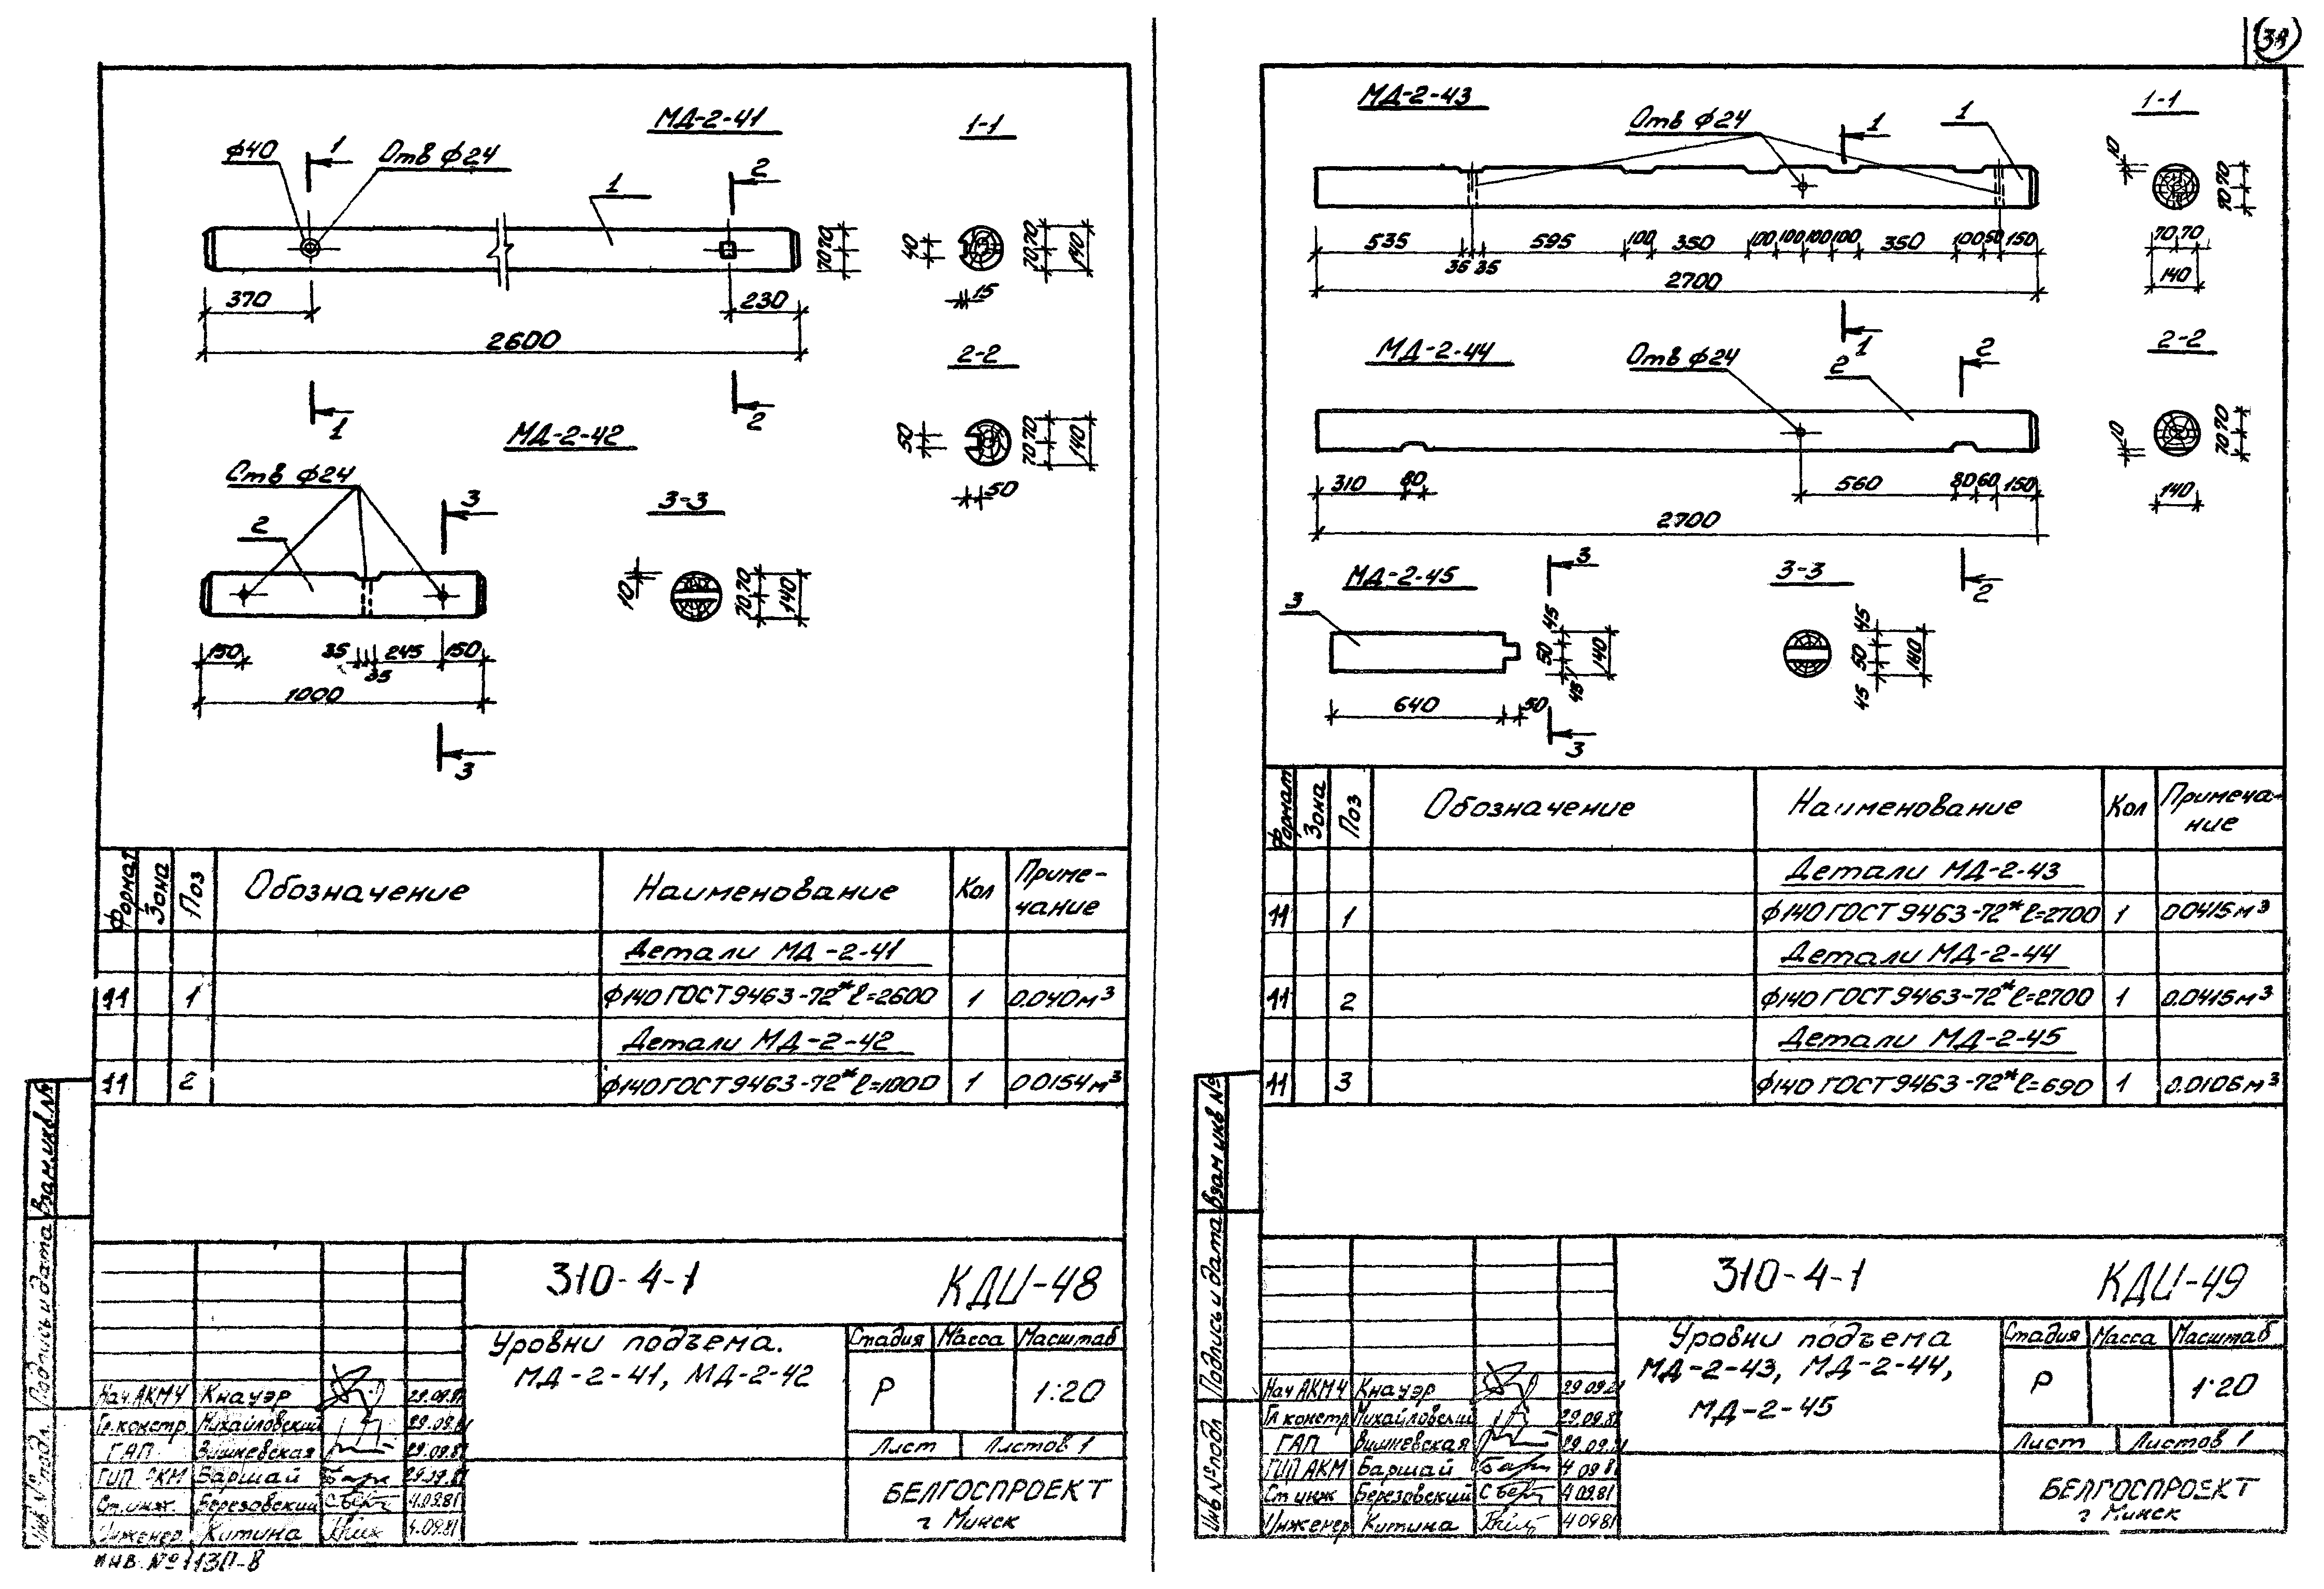 38
МД-2-41
1-1
ф40
Отв ф24
1
2
1
7070
370
230
2600
1
2
40
7070
140
15
2-2
50
7070
140
50
МД-2-42
Отв ф24
2
3
3-3
10
7070
140
150
35
35
245
150
1000
3
Формат
Зона
Поз
Обозначение
Наименование
Кол
Приме-
чание
Детали МД-2-41
11
1
ф140 ГОСТ 9463-72* ℓ=2600
1
0.040м³
Детали МД-2-42
11
2
ф140 ГОСТ 9463-72* ℓ=1000
1
0.0154м³
Взам.инв.№
Подпись и дата
Инв.№подл.
310-4-1
КДИ-48
Уровни подъема.
МД-2-41, МД-2-42
Стадия
Масса
Масштаб
Р
1:20
Лист
Листов 1
БЕЛГОСПРОЕКТ
г Минск
Нач.АКМ4 Кнауэр 29.09.81
Гл.констр. Михайловский 29.09.81
ГАП Вишневская 29.09.81
ГИП АКМ Баршай 29.09.81
Ст.инж. Березовский 4.09.81
Инженер Китина 4.09.81
инв.№1130-В
МД-2-43
Отв ф24
1
1
1-1
10
7070
7070
140
535
35 35
595
100
350
100
100
100
100
350
100
50
150
2700
1
МД-2-44
Отв ф24
2
2
2-2
10
7070
140
310
80
560
80
60
150
2700
2
МД-2-45
3
3
3-3
45
50
45
140
45
50
45
140
640
50
3
Формат
Зона
Поз
Обозначение
Наименование
Кол
Примеча-
ние
Детали МД-2-43
11
1
ф140 ГОСТ 9463-72* ℓ=2700
1
0.0415м³
Детали МД-2-44
11
2
ф140 ГОСТ 9463-72* ℓ=2700
1
0.0415м³
Детали МД-2-45
11
3
ф140 ГОСТ 9463-72* ℓ=690
1
0.0106м³
Взам инв №
Подпись и дата
Инв №подл
310-4-1
КДИ-49
Уровни подъема
МД-2-43, МД-2-44,
МД-2-45
Стадия
Масса
Масштаб
Р
1:20
Лист
Листов 1
БЕЛГОСПРОЕКТ
г Минск
Нач АКМ4 Кнауэр 29.09.81
Гл констр Михайловский 29.09.81
ГАП Вишневская 29.09.81
ГИП АКМ Баршай 4 09 81
Ст инж Березовский 4 0981
Инженер Китина 4 0981